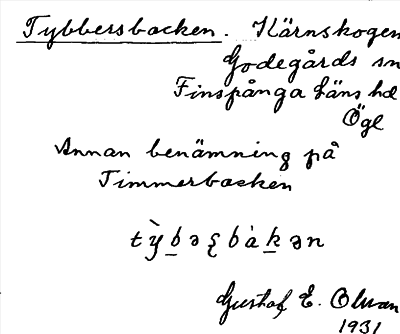 Tybbersbacken. Kärnskogen
Godegårds sn
Finspånga läns hd
Ögl
Annan benämning på
Timmerbacken
Gustaf E. Olman
1931